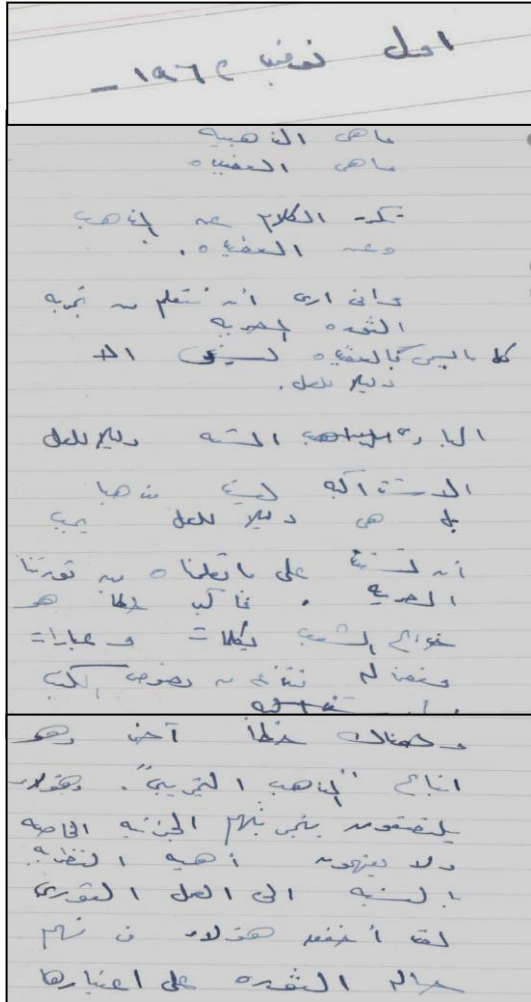 اول نوفمبر ١٩٦٢ –
ماهى المذهبيه
ماهى العقيده
تكرر الكلام عن المذهب
وعن العقيده .
وانى ارى أن نتعلم من تجربه
الثوره المصريه
كل ما ليس بالعقيده ليس الا
دليلا للعمل .
المبادئ دليلا للعمل
الاشتراكيه ليست مذهبا
بل هى دليلا للعمل يجب
أن على ما تعلمناه من ثورتنا
المصريه . فأكبر خطأ هو
خداع الشعب بكلمات و عبارات
من نصوص الكتب
وهناك خطأ آخر وهو
اتباع "المذهب التجريبى" . وهؤلاء
يلتصقون بتجربتهم الجزئيه الخاصه
ولا يفهمون أهميه النظريه
بالنسبه الى العمل الثورى
لقد أخفق هؤلاء فى فهم
الثوره على اعتبارها